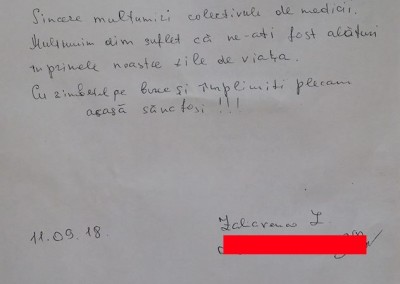 Sincere multumiri colectivului de medici.
Multumim dim suflet că ne-ati fost alături
in primele noastre zile de viața.
Cu zimbetul pe buze și împliniti plecam
acasă sănctosi !!!
11.09.18.